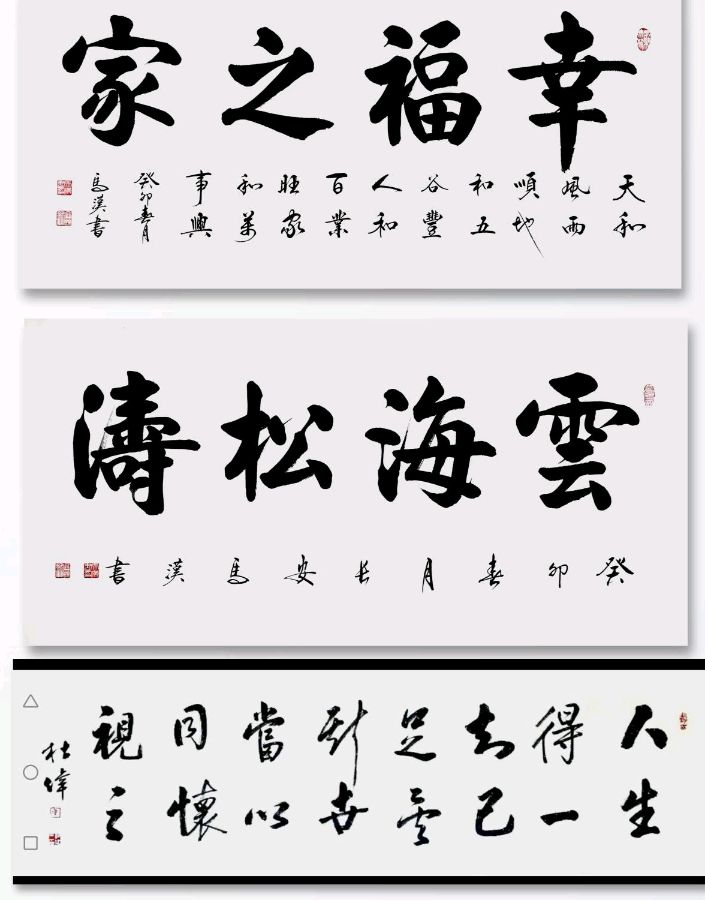 幸福之家
天和
風雨
順地
和五
谷豐
人和
百業
旺家
和萬
事興
癸卯春月
馬漢書
雲海松濤
癸卯春月長安馬漢書
人生
得一
知己
足矣
斯世
當以
同懷
視之
杜偉